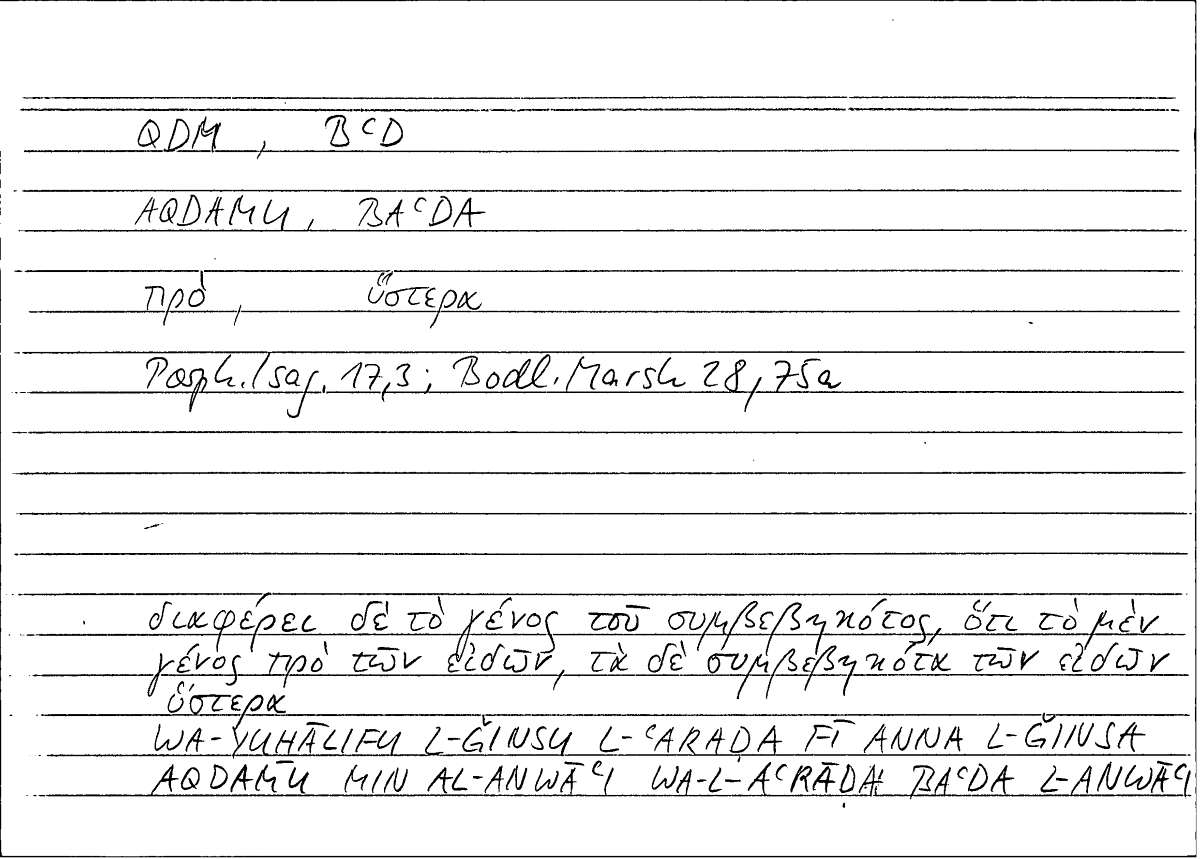 QDM, BʿD
AQDAMU, BAʿDA
πρὸ, ὕστερα
Porph. Isag. 17,3; Bodl. Marsh 28, 75a
διαφέρει δὲ τὸ γένος τοῦ συμβεβηκότος, ὅτι τὸ μὲν
γένος πρὸ τῶν εἰδῶν, τὰ δὲ συμβεβηκότα τῶν εἰδῶν
ὕστερα
WA-YUHĀLIFU L-ǦINSU L-ʿARAḌA FĪ ANNA L-ǦINSA
AQDAMU MIN AL-ANWĀʿI WA-L-AʿRĀḌA BAʿDA L-ANWĀʿI